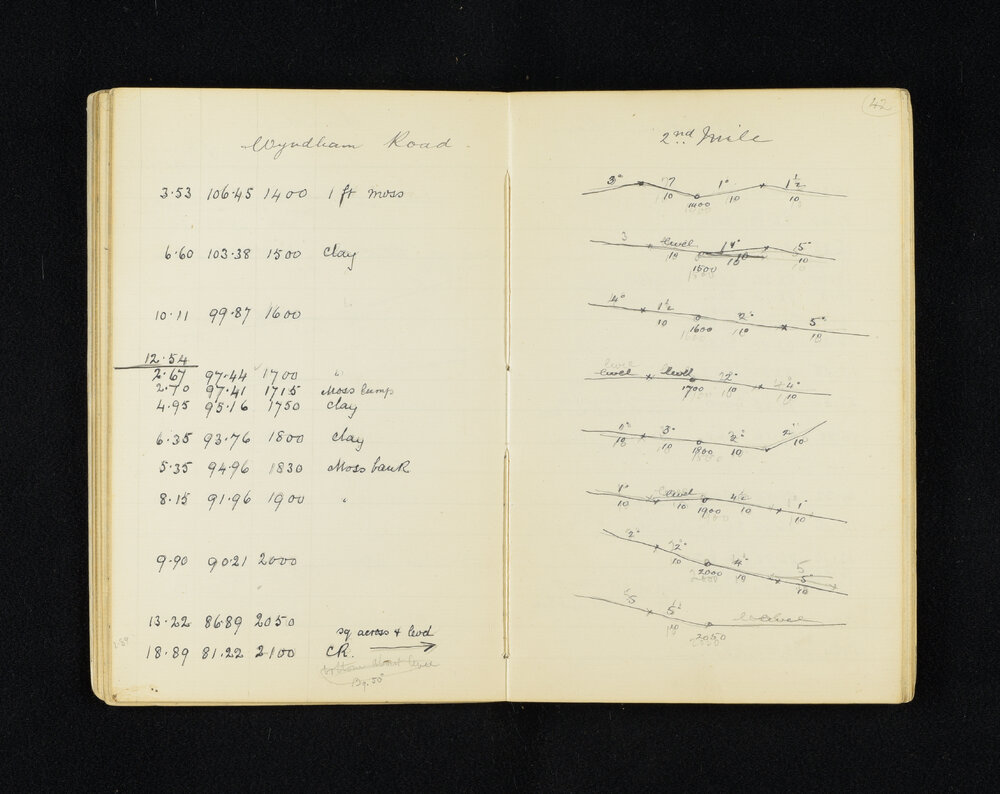 Wyndham Road.
3.53 106.45 1400 1 ft moss
6.60 103.38 1500 clay
10.11 99.87 1600
12.54
2.67 97.44 1700 "
2.70 97.41 1715 Moss hump
4.95 95.16 1750 clay
6.35 93.76 1800 clay
5.35 94.96 1830 Moss bank
8.15 91.96 1900 "
9.90 90.21 2000
13.22 86.89 2050
sq. across & level
18.89 81.22 2100 CK.
bottom about level
Bg. 50°
42
2nd Mile
3° 7 1° 1½
10 10 10
1400
3 level 1½° 5°
10 10 10
1500
4° 1½ 2° 5°
10 1600 10 10
level level 2° 4°
1700 10 10
1° 3° 2° 2°
10 10 1800 10 10
1° level 4½ 1°
10 10 1900 10 10
2° 2° 4° 5°
10 2000 10 10
5 5½ level
10 2050